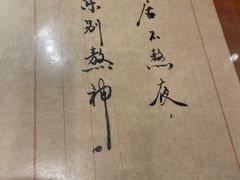 居不熬夜，
乐别熬神。